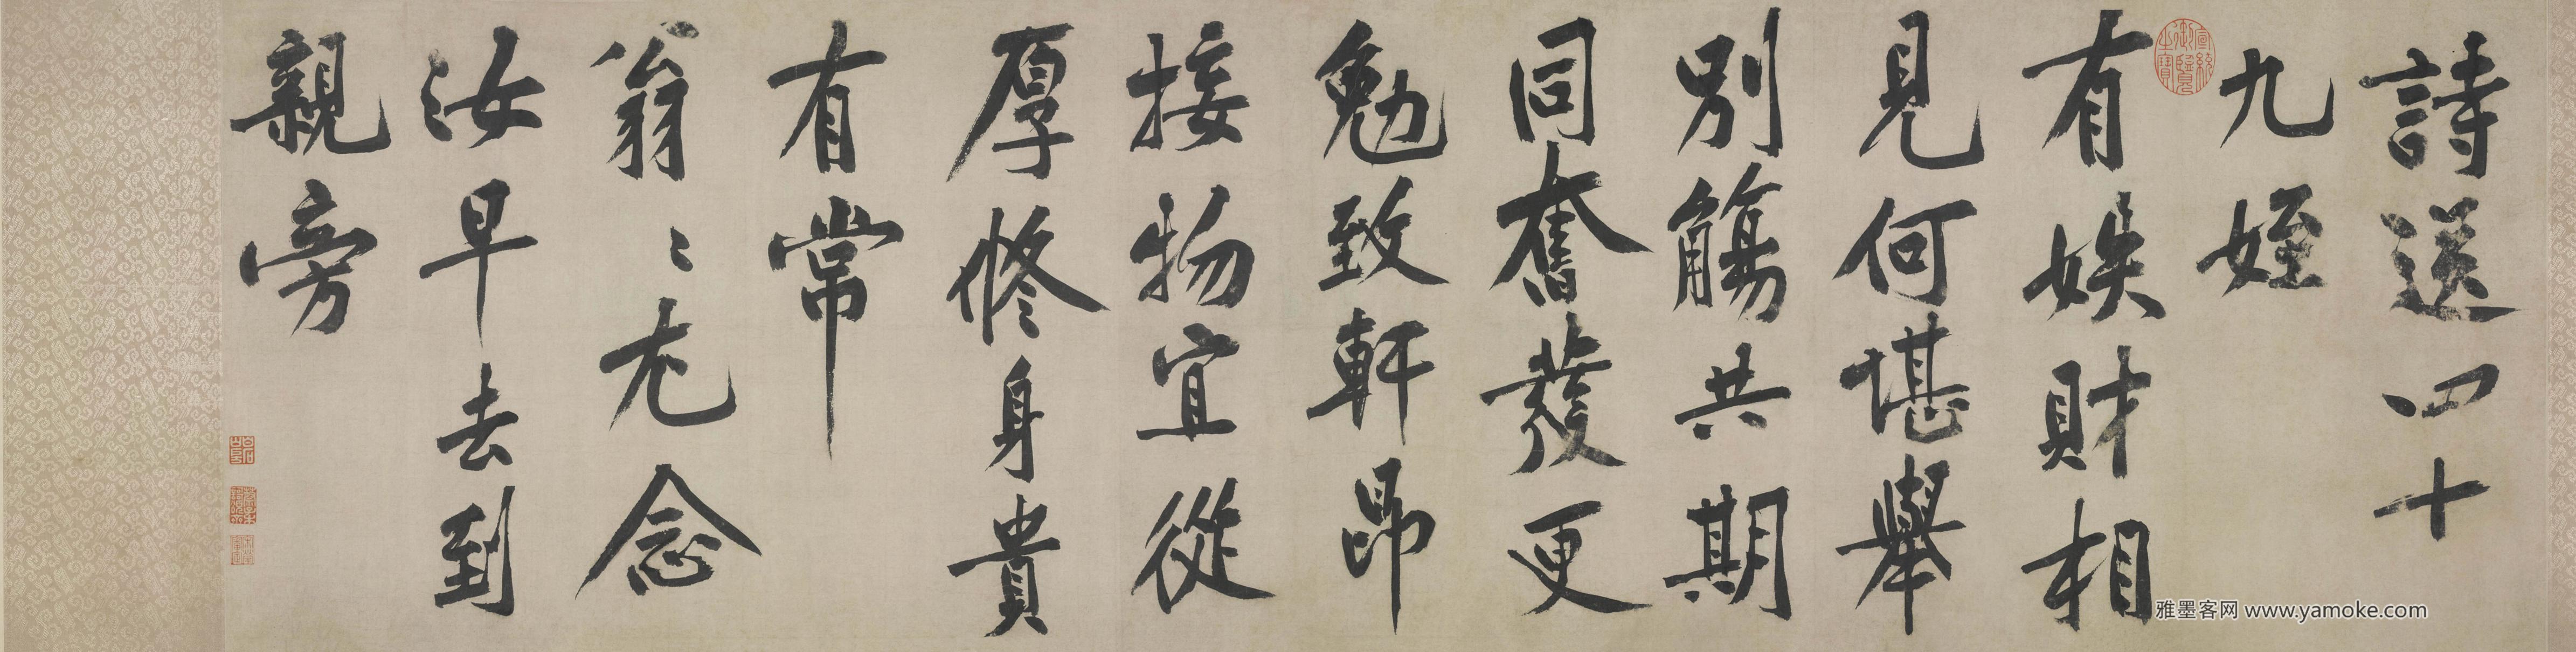 詩送四十
九姪
有娭財相
見何堪舉
別觴共期
同奮發更
勉致軒昂
接物宜從
厚修身貴
有常
翁〻尤念
汝早去到
親旁
宣統御覽之寶
雅墨客网 www.yamoke.com